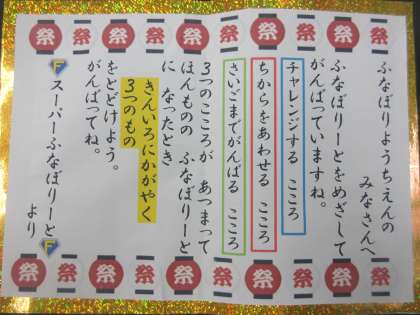 祭 祭 祭 祭 祭 祭 祭 祭
ふなぼりようちえんの
みなさんへ
ふなぼりーとをめざして
がんばっていますね。
チャレンジする こころ
ちからをあわせる こころ
さいごまでがんばる こころ
3つのこころが あつまって
ほんものの ふなぼりーと
に なったとき
きんいろにかがやく
3つのもの
をとどけよう。
がんばってね。
F スーパーふなぼりーと F
より
祭 祭 祭 祭 祭 祭 祭 祭